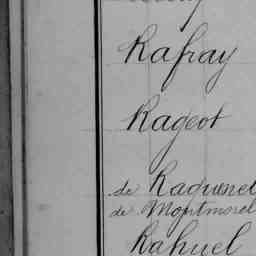 Rafray
Rageot
de Raguenel
de Montmorel
Rahuel